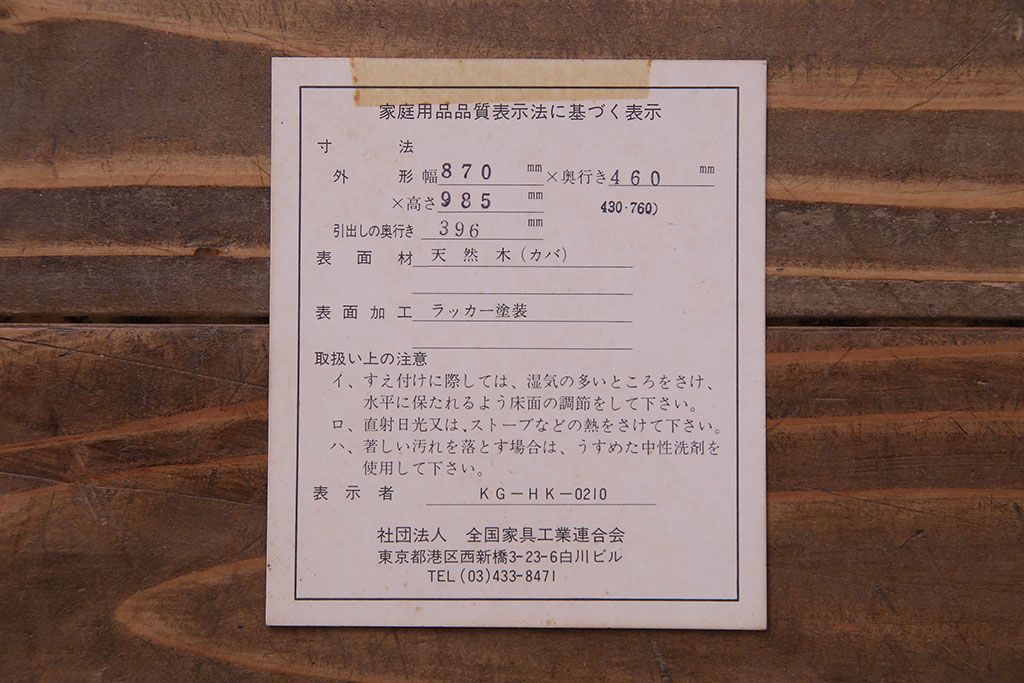 家庭用品品質表示法に基づく表示
寸法
外形 幅 870 mm ×奥行き 460 mm
×高さ 985 mm 430・760)
引出しの奥行き 396 mm
表面材 天然木(カバ)
表面加工 ラッカー塗装
取扱い上の注意
イ、すえ付けに際しては、湿気の多いところをさけ、
水平に保たれるよう床面の調節をして下さい。
ロ、直射日光又は、ストーブなどの熱をさけて下さい。
ハ、著しい汚れを落とす場合は、うすめた中性洗剤を
使用して下さい。
表示者 KG-HK-0210
社団法人 全国家具工業連合会
東京都港区西新橋3-23-6白川ビル
TEL(03)433-8471